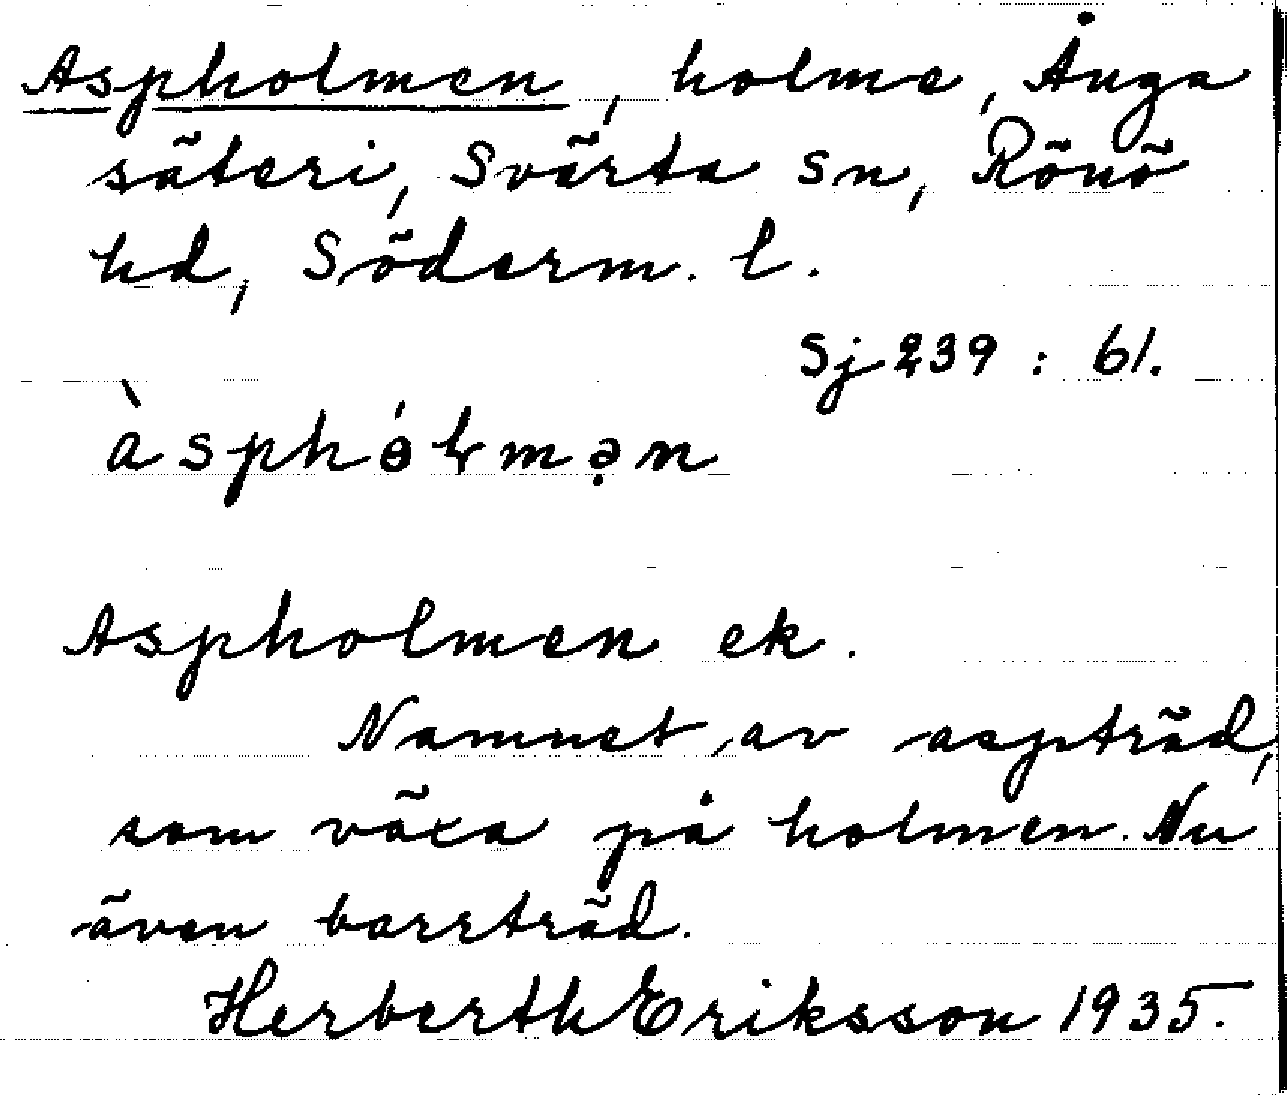 Aspholmen, holme, Ånga
säteri, Svärta sn, Rönö
hd, Söderm. l.
Sj 239 : 61.
àsphɵ́ɫmən
Aspholmen ek.
Namnet av aspträd,
som växa på holmen. Nu
även barrträd.
Herberth Eriksson 1935.